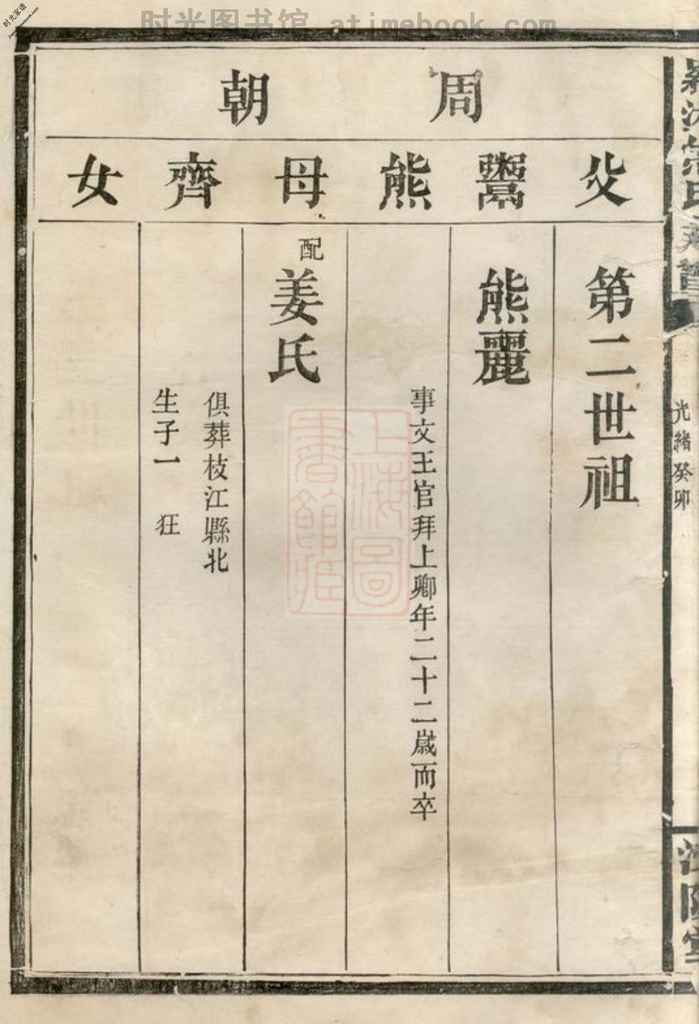 时光图书馆 atimebook.com
时光家谱
周朝
父鬻熊母齊女
第二世祖
熊麗
事文王官拜上卿年二十二嵗而卒
配姜氏
俱葬枝江縣北
生子一 狂
光緒癸卯
上海圖書館藏